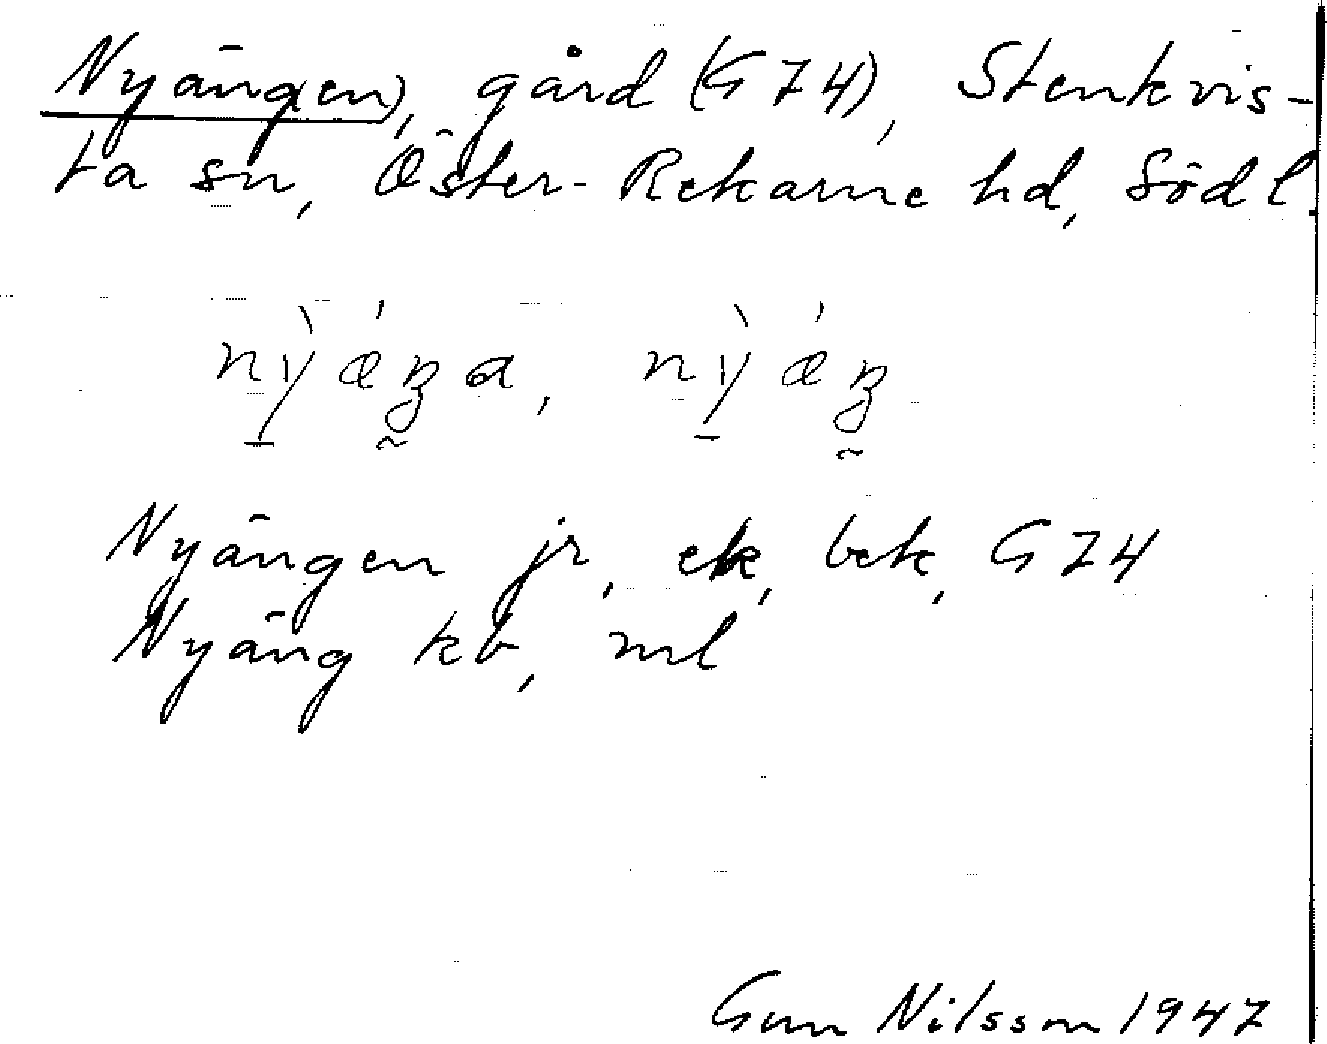 Nyängen, gård (G 74), Stenkvis-
ta sn, Öster-Rekarne hd, Södl.
Nyängen jr, ek, bek, G 74
Nyäng kb, ml
Gun Nilsson 1947